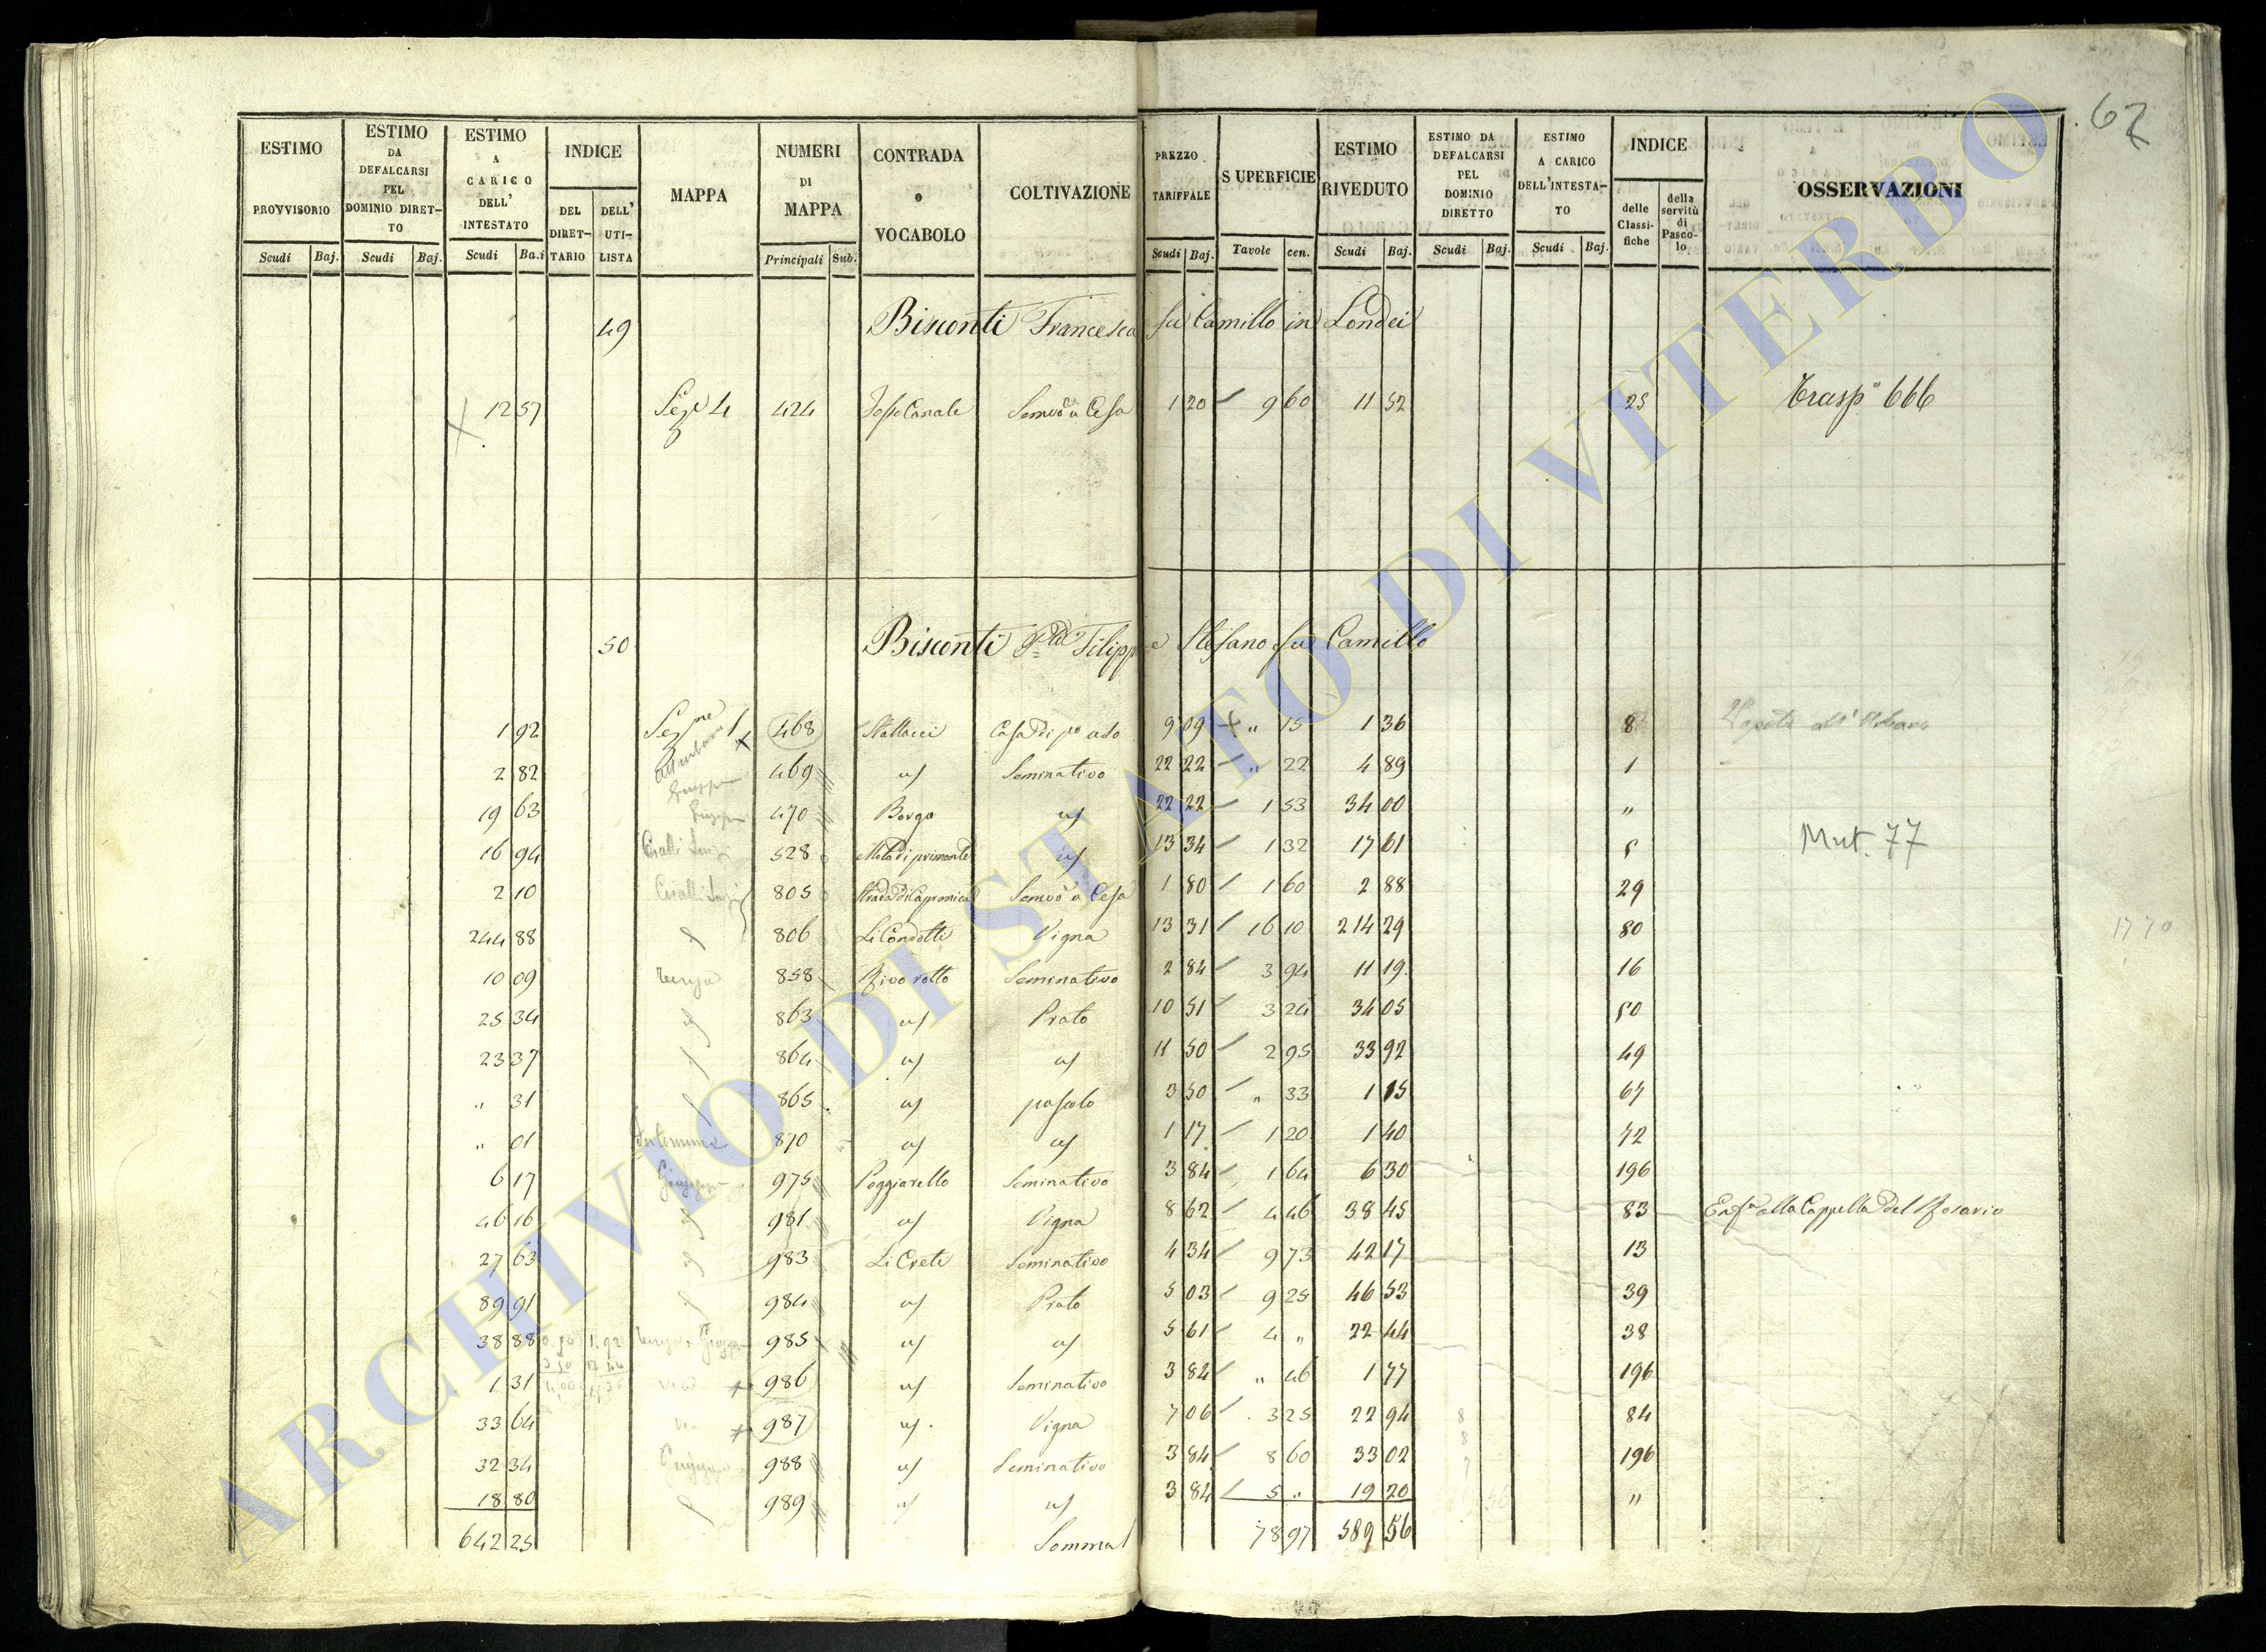 62
ESTIMO PROVVISORIO Scudi Baj. ESTIMO DA DEFALCARSI PEL DOMINIO DIRET-TO Scudi Baj. ESTIMO A CARICO DELL' INTESTATO Scudi Ba.i INDICE DEL DIRET-TARIO DELL' UTI-LISTA MAPPA NUMERI DI MAPPA Principali Sub. CONTRADA o VOCABOLO COLTIVAZIONE PREZZO TARIFFALE Scudi Baj. SUPERFICIE Tavole cen. ESTIMO RIVEDUTO Scudi Baj. ESTIMO DA DEFALCARSI PEL DOMINIO DIRETTO Scudi Baj. ESTIMO A CARICO DELL'INTESTA-TO Scudi Baj. INDICE delle Classi-fiche della servitù di Pasco-lo OSSERVAZIONI
49 Bisconti Francesca fu Camillo in Londei
12 57 Sez.e 4 424 Fosso Canale Semvo a Cesa 1 20 9 60 11 52 25 Trasp.o 666
50 Bisconti Filippo e Stefano fu Camillo
1 92 Sez.ne 1 468 Stallacci Casa di po uso 9 09 " 15 1 36 8
2 82 469 " Seminativo 22 22 " 22 4 89 1
19 63 470 Borgo " 22 22 1 53 34 00 "
16 94 528 " 13 34 1 32 17 61 5 Mut. 77
2 10 805 Strada di Capranica Semvo a Cesa 1 80 1 60 2 88 29
244 88 806 Li Condotti Vigna 13 31 16 10 214 29 80 1770
10 09 858 Rivo rotto Seminativo 2 84 3 94 11 19 16
25 34 863 " Prato 10 51 3 24 34 05 50
23 37 864 " " 11 50 2 95 33 92 49
" 31 865 " pascolo 3 50 " 33 1 15 67
" 01 870 " " 1 17 1 20 1 40 72
6 17 975 Poggiarello Seminativo 3 84 1 64 6 30 196
46 16 981 " Vigna 8 62 4 46 38 45 83 Enf.a alla Cappella del Rosario
27 63 983 Li Creti Seminativo 4 34 9 73 42 17 13
89 91 984 " Prato 5 03 9 25 46 53 39
38 88 985 " " 5 61 4 " 22 44 38
1 31 986 " Seminativo 3 84 " 46 1 77 196
33 64 987 " Vigna 7 06 3 25 22 94 84
32 34 988 " Seminativo 3 84 8 60 33 02 196
18 80 989 " " 3 84 5 " 19 20 "
642 25 Somma 78 97 589 56
ARCHIVIO DI STATO DI VITERBO